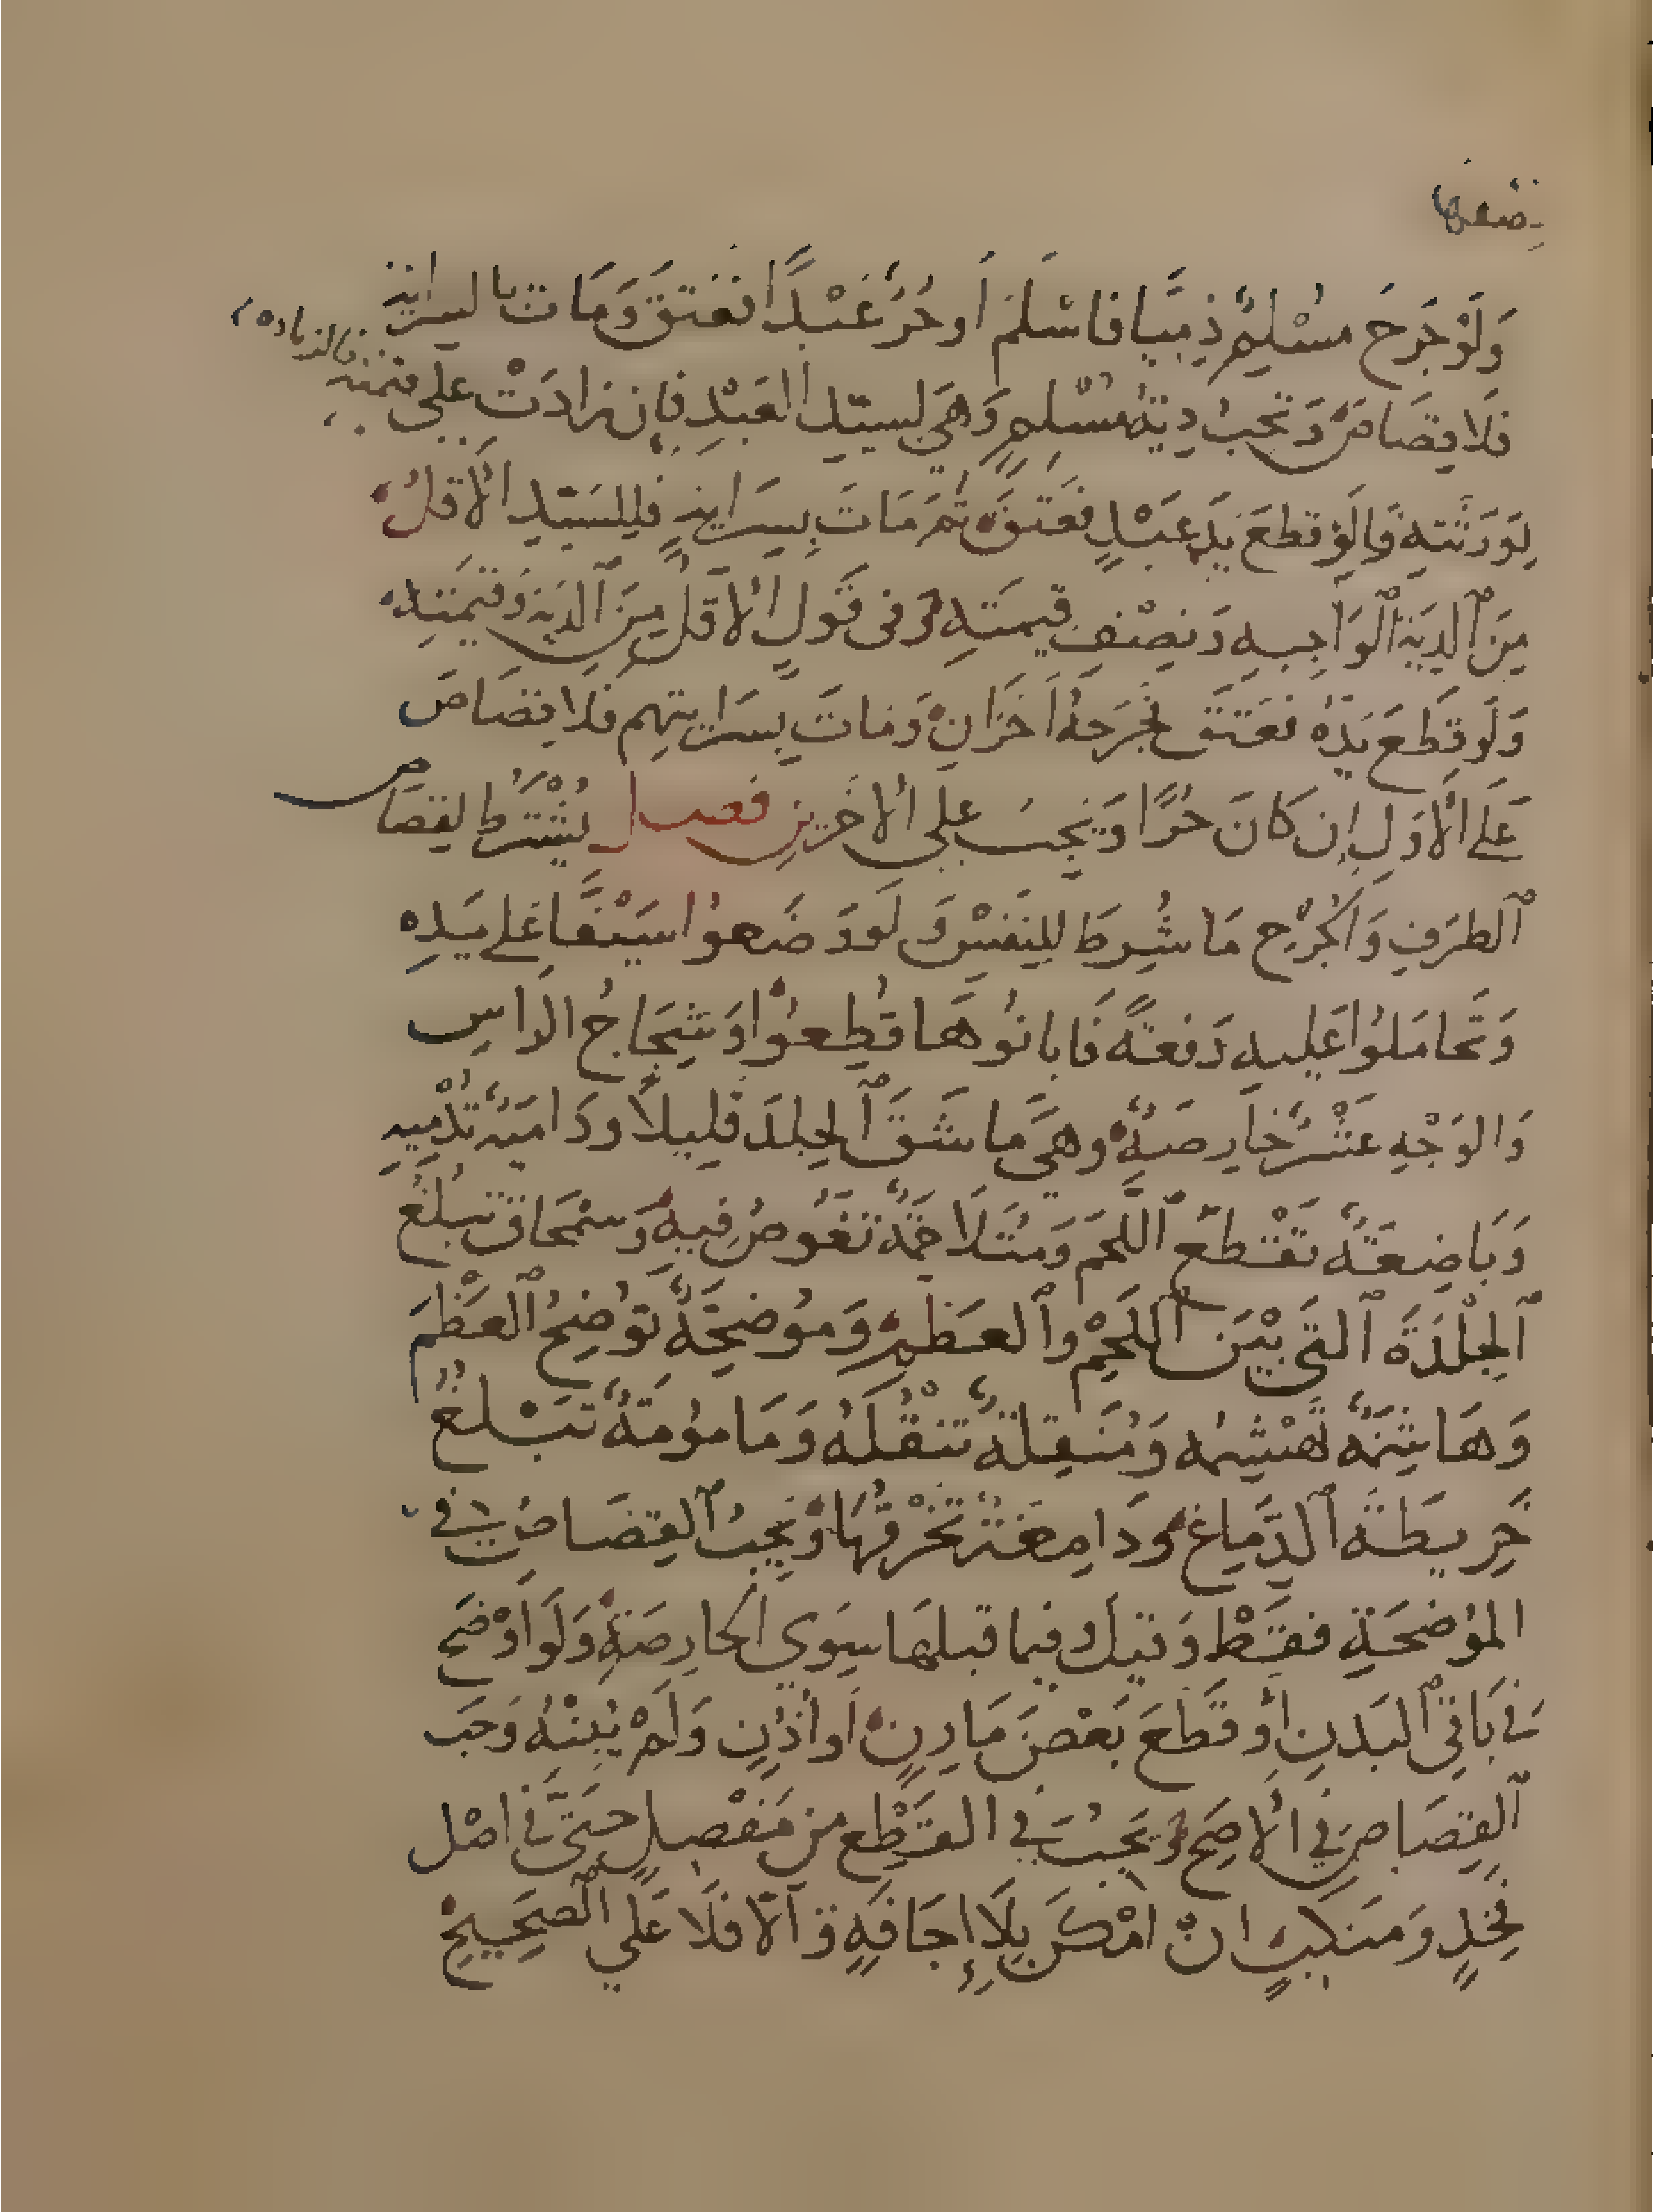 نصفها
وَلَوْ جَرَحَ مُسْلِمٌ ذِمِّيًا فَاسْلَمَ اَو حُرٌّ عَبْدًا فَعَتَقَ وَمَاتَ بالسرايَةِ
فَلَا قِصَاصَ وَتجِبُ دِيَةُ مُسْلِمٍ وَهِيَ لسيّدِ العَبْدِ فَإِن زادَتْ عَلى قيمتِهِ فالزيادة
لِوَرَثَتِهِ وَلَوْ قطعَ يَدَ عَبْدٍ فَعَتَقَ ثمَّ مَاتَ بِسِرَايَةٍ فَلِلسَيّدِ الاَقلُّ
مِنَ ٱلدِيَةِ ٱلْوَاجِبةِ وَنِصْفِ قيمَتِهِ وَفى قَوْلٍ الاَقلُّ مِنَ ٱلدِيَةِ وَقيمَتِهِ
وَلَو قَطَعَ يَدَهُ فَعَتَقَ فجَرَحَهُ اَخَرَانِ وَمَاتَ بِسرَايتِهِم فَلَا قِصَاصَ
عَلَى الاَوَلِ إن كَانَ حُرًّا وَيَجِبُ عَلى الاَخَرَينِ فصل يُشْتَرَطُ لِقصَاصِ
ٱلطرَفِ وَالجُرْحِ مَا شُرِطَ لِلنَفْسِ وَلَو وَضَعُوا سَيْفًا عَلى يَدِهِ
وَتَحَامَلُوا عَلَيهِ دَفعَةً فَابانُوهَا قُطِعُوْا وَشِجَاجُ الرَاسِ
وَالوَجْهِ عَشْرٌ حَارِصَةٌ وهيَ مَا شَقَّ ٱلْجِلدَ قَلِيلًا ودَاميَةٌ تُدْمِيهِ
وَبَاضِعَةٌ تَقْطَعُ اَللَّحمَ وَمُتَلَاحمَةٌ تَغُوصُ فِيهِ وَسِمْحَاقٌ تَبلُغُ
ٱلْجِلْدَةَ ٱلتي بَيْنَ ٱللَحْمِ وٱلعَظْمِ وَمُوْضِحَةٌ تُوْضِحُ ٱلْعَظْمَ
وَهَاشِمَةٌ تَهْشِمُه وَمُنَقِلَةٌ تَنْقُلُهُ وَمَامُومَةٌ تَبْلغُ
خَرِيطَةَ ٱلدِّمَاغِ وَدَامِغَةٌ تَخْرِقُهَا وَيجبُ ٱلقِصَاصُ في
المُوْضحَةِ فَقَطْ وَقيلَ وفيما قبلهَا سِوَى الحَارِصَةِ وَلَوْ اَوْضَحَ
في بَاقِي ٱلبَدَنِ اَوْ قَطَعَ بَعْضَ مَارِنٍ اَو اُذُنٍ وَلَمْ يُبِنْهُ وَجَبَ
ٱلْقِصَاصُ في الاَصَحِّ وَيَجِبُ في القَطْعِ من مَفْصِلٍ حَتَّى في اصْلِ
فَخِذٍ وَمَنكِبٍ انْ اَمْكَنَ بِلَا إِجَافَةٍ وَالّا فَلَا عَلَى ٱلْصَحِيحِ